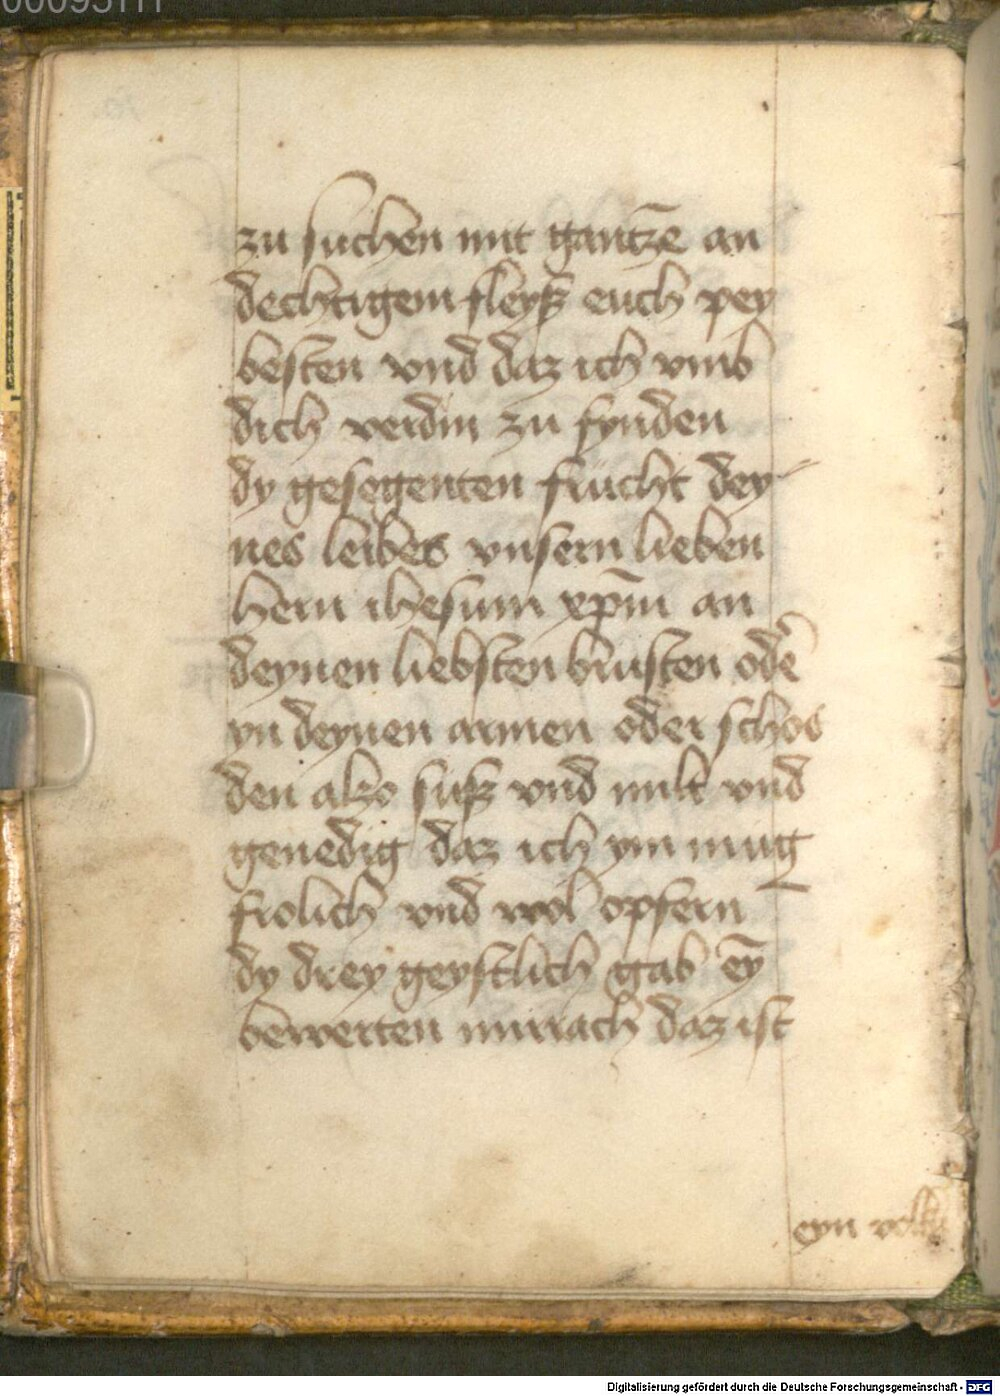 zu suchen mit gantzē an
dechtigem fleysz euch pey
besten vnd daz ich vmb
dich verdin zu fynden
dy gesegenten frücht dey
nes leibes vnsern lieben
hern ihesum xp̄m an
deynen liebsten brusten oder̄
yn deynen armen oder schos
den also susz vnd milt vnd
genedig daz ich ym mug
frolich vnd wol opfern
dy drey geystlich gab eȳ
bewerten mirrach daz ist
eyn
Digitalisierung gefördert durch die Deutsche Forschungsgemeinschaft - DFG